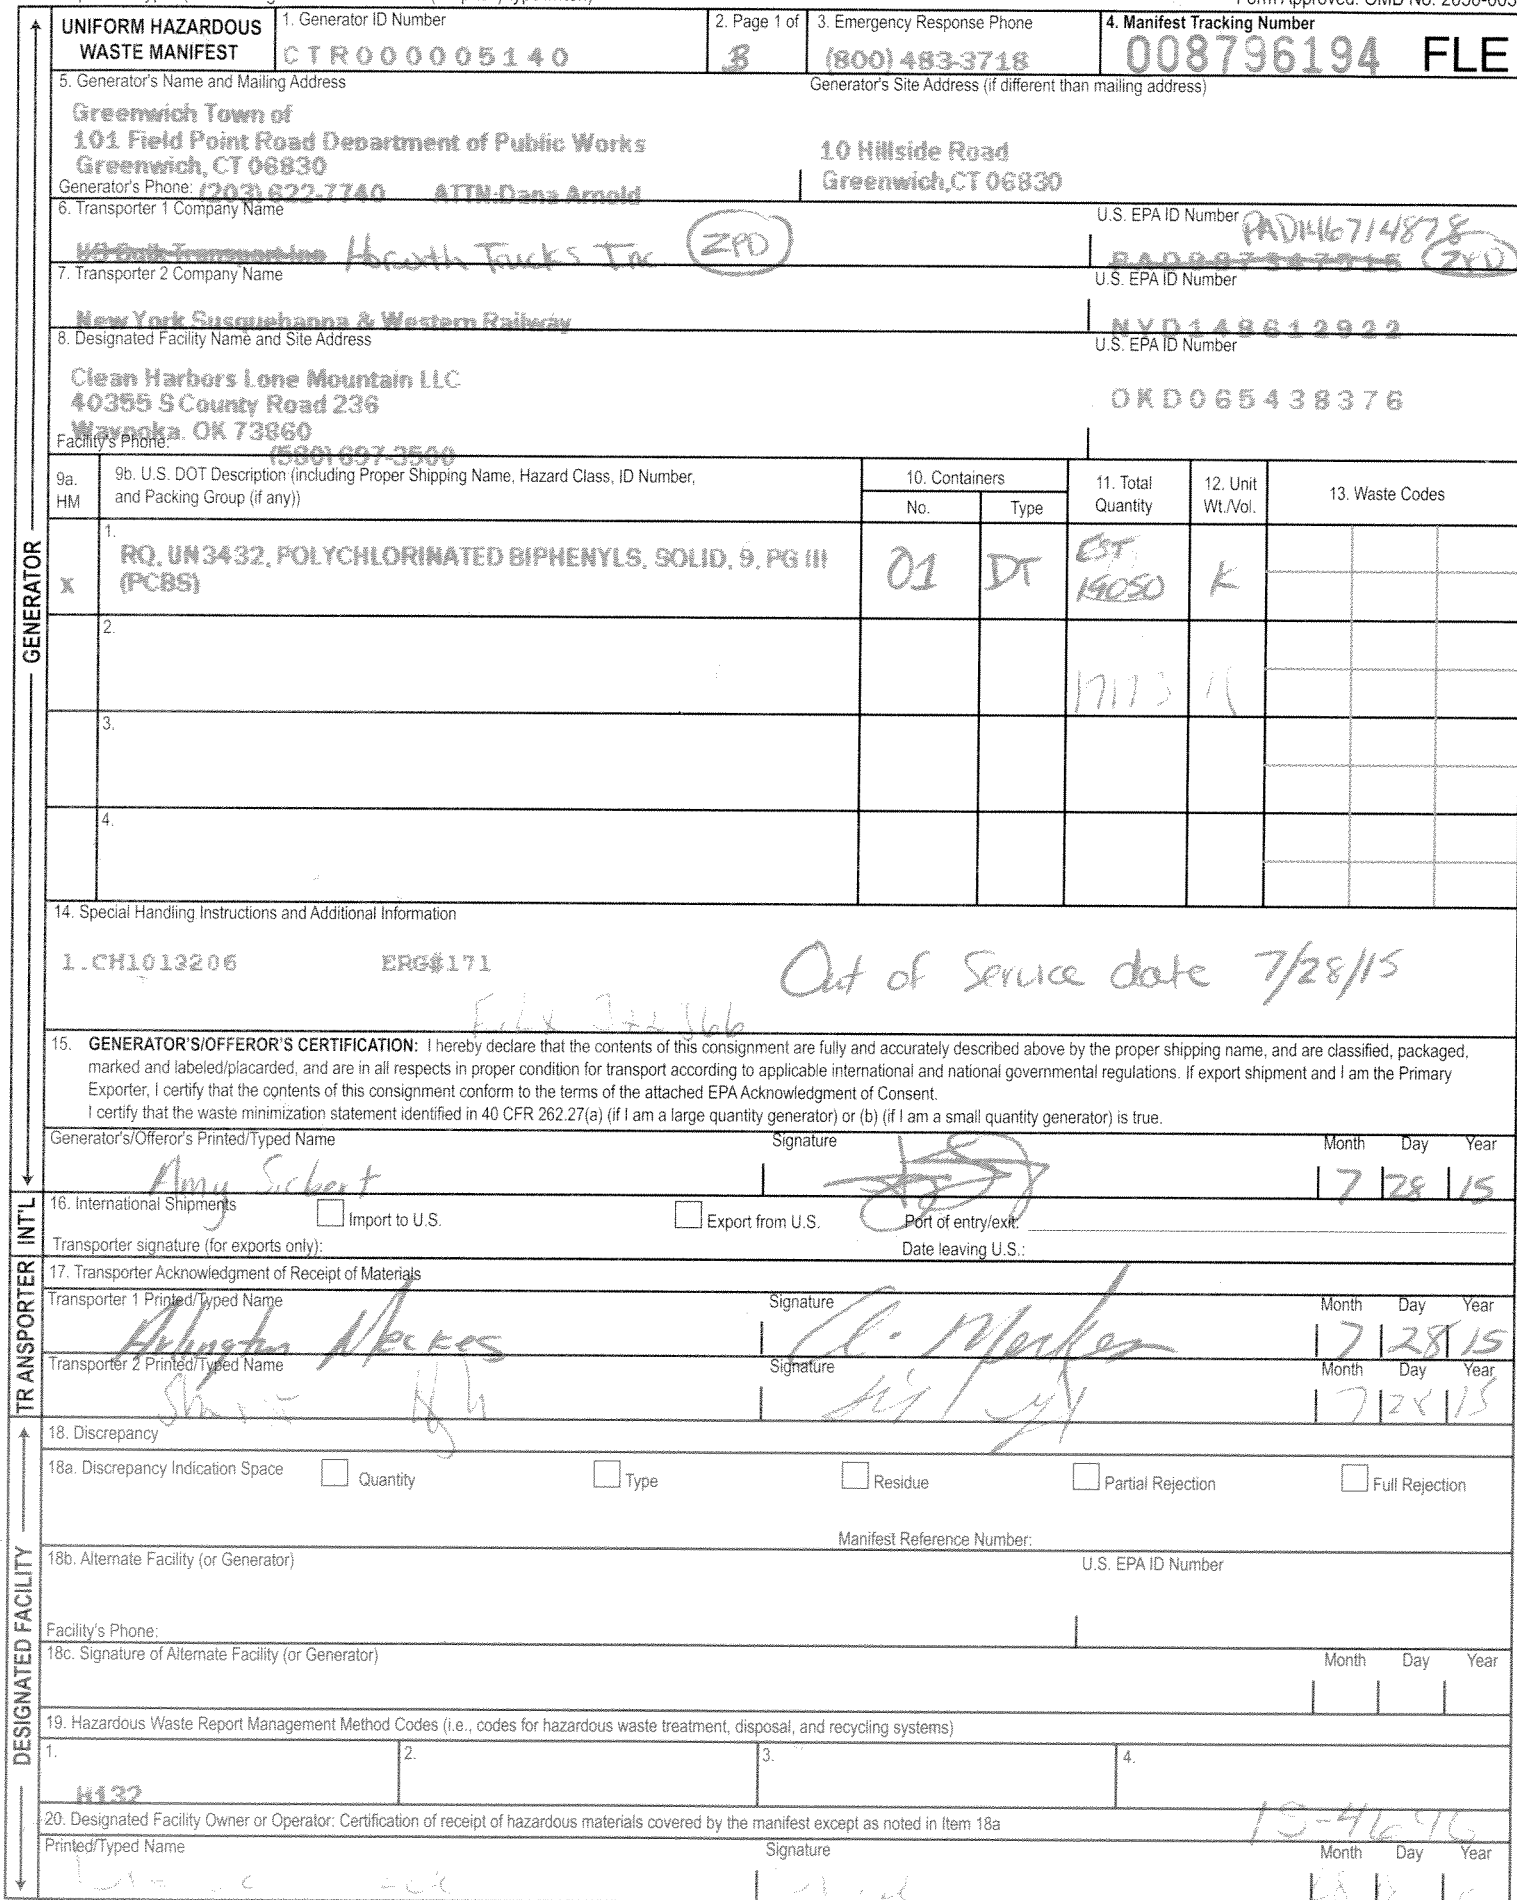 UNIFORM HAZARDOUS WASTE MANIFEST
1. Generator ID Number
CTR000005140
2. Page 1 of
3. Emergency Response Phone
(800) 483-3718
4. Manifest Tracking Number
008796194 FLE
5. Generator's Name and Mailing Address
Generator's Site Address (if different than mailing address)
Greenwich Town of
101 Field Point Road Department of Public Works
Greenwich, CT 06830
10 Hillside Road
Greenwich,CT 06830
Generator's Phone: (203) 622-7740 ATTN:Dana Arnold
6. Transporter 1 Company Name
U.S. EPA ID Number
PAD146714878
US Bulk Transport Inc Horwith Trucks Inc. ZPD
PAD987347515 ZPD
7. Transporter 2 Company Name
U.S. EPA ID Number
New York Susquehanna & Western Railway
NYD148612922
8. Designated Facility Name and Site Address
U.S. EPA ID Number
Clean Harbors Lone Mountain LLC
40355 S County Road 236
Waynoka. OK 73860
OKD065438376
Facility's Phone: (580) 697-3500
9a. HM
9b. U.S. DOT Description (including Proper Shipping Name, Hazard Class, ID Number, and Packing Group (if any))
10. Containers
No.
Type
11. Total Quantity
12. Unit Wt./Vol.
13. Waste Codes
1.
X
RQ, UN3432, POLYCHLORINATED BIPHENYLS, SOLID, 9, PG III
(PCBS)
01
DT
EST
K
2.
17173
3.
4.
14. Special Handling Instructions and Additional Information
1.CH1013206 ERG#171
Out of Service date 7/28/15
15. GENERATOR'S/OFFEROR'S CERTIFICATION: I hereby declare that the contents of this consignment are fully and accurately described above by the proper shipping name, and are classified, packaged,
marked and labeled/placarded, and are in all respects in proper condition for transport according to applicable international and national governmental regulations. If export shipment and I am the Primary
Exporter, I certify that the contents of this consignment conform to the terms of the attached EPA Acknowledgment of Consent.
I certify that the waste minimization statement identified in 40 CFR 262.27(a) (if I am a large quantity generator) or (b) (if I am a small quantity generator) is true.
Generator's/Offeror's Printed/Typed Name
Signature
Month Day Year
Amy Siebert
7 28 15
16. International Shipments
Import to U.S.
Export from U.S.
Port of entry/exit:
Transporter signature (for exports only):
Date leaving U.S.:
17. Transporter Acknowledgment of Receipt of Materials
Transporter 1 Printed/Typed Name
Signature
Month Day Year
Arlington Meckes
A. Meckes
7 28 15
Transporter 2 Printed/Typed Name
Signature
Month Day Year
7 28 15
18. Discrepancy
18a. Discrepancy Indication Space
Quantity
Type
Residue
Partial Rejection
Full Rejection
Manifest Reference Number:
18b. Alternate Facility (or Generator)
U.S. EPA ID Number
Facility's Phone:
18c. Signature of Alternate Facility (or Generator)
Month Day Year
19. Hazardous Waste Report Management Method Codes (i.e., codes for hazardous waste treatment, disposal, and recycling systems)
1.
2.
3.
4.
H132
20. Designated Facility Owner or Operator: Certification of receipt of hazardous materials covered by the manifest except as noted in Item 18a
15-4646
Printed/Typed Name
Signature
Month Day Year
GENERATOR
INT'L
TRANSPORTER
DESIGNATED FACILITY